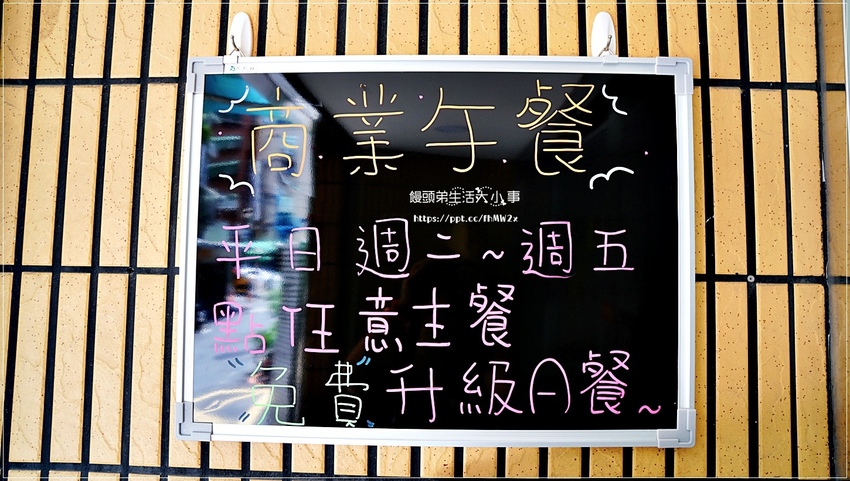 商業午餐
饅頭弟生活大小事
https://ppt.cc/fhMW2x
平日週二~週五
點任意主餐
"免費"升級A餐~